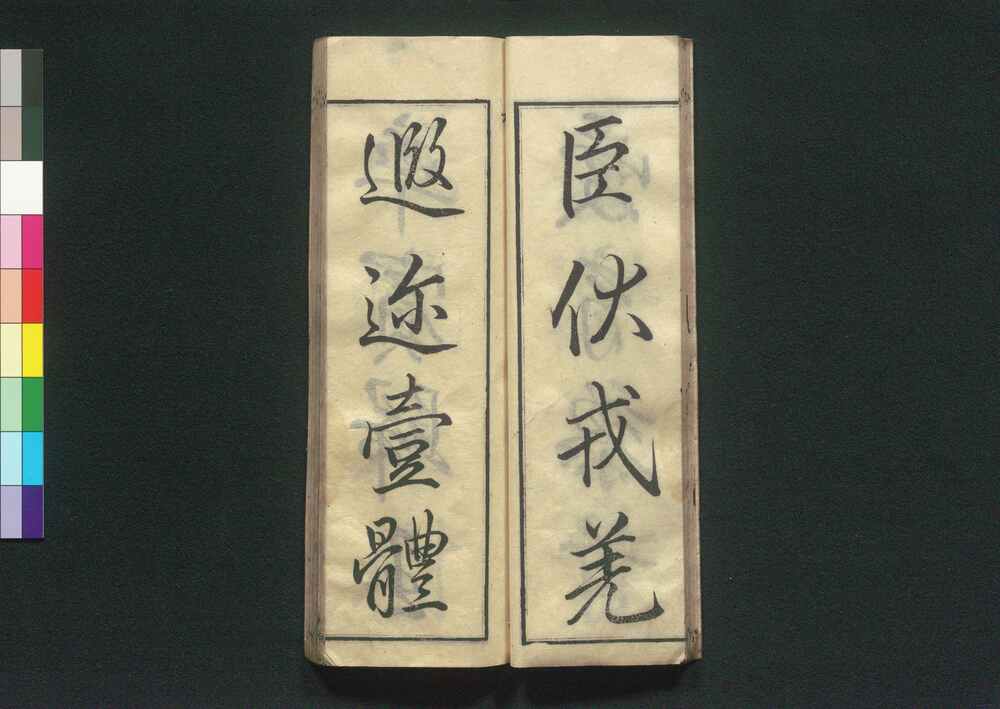 臣伏戎羌
遐迩壹體